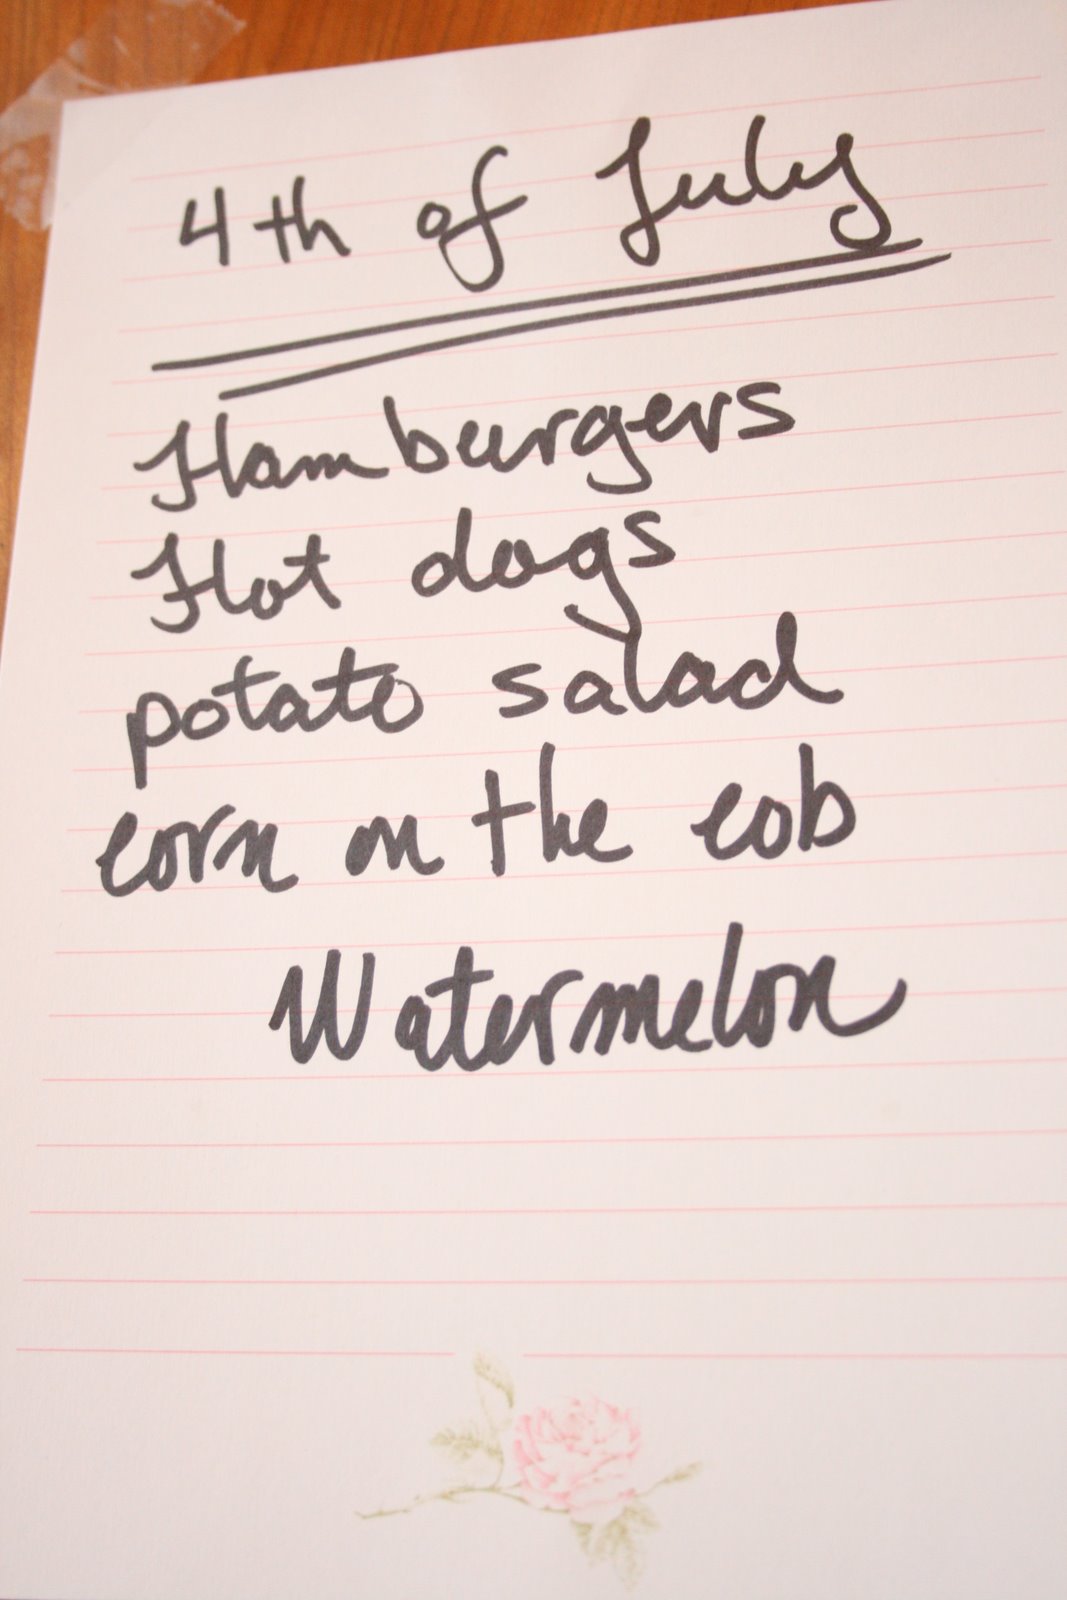 4th of July
Hamburgers
Hot dogs
potato salad
corn on the cob
Watermelon